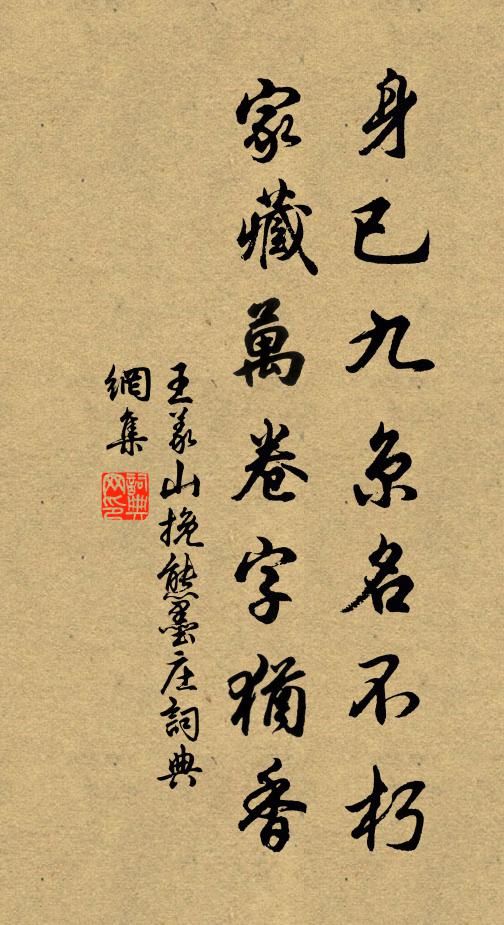 身已九京名不朽
家藏萬卷字猶香
王義山挽熊墨庄詞典
網集
詞典網印